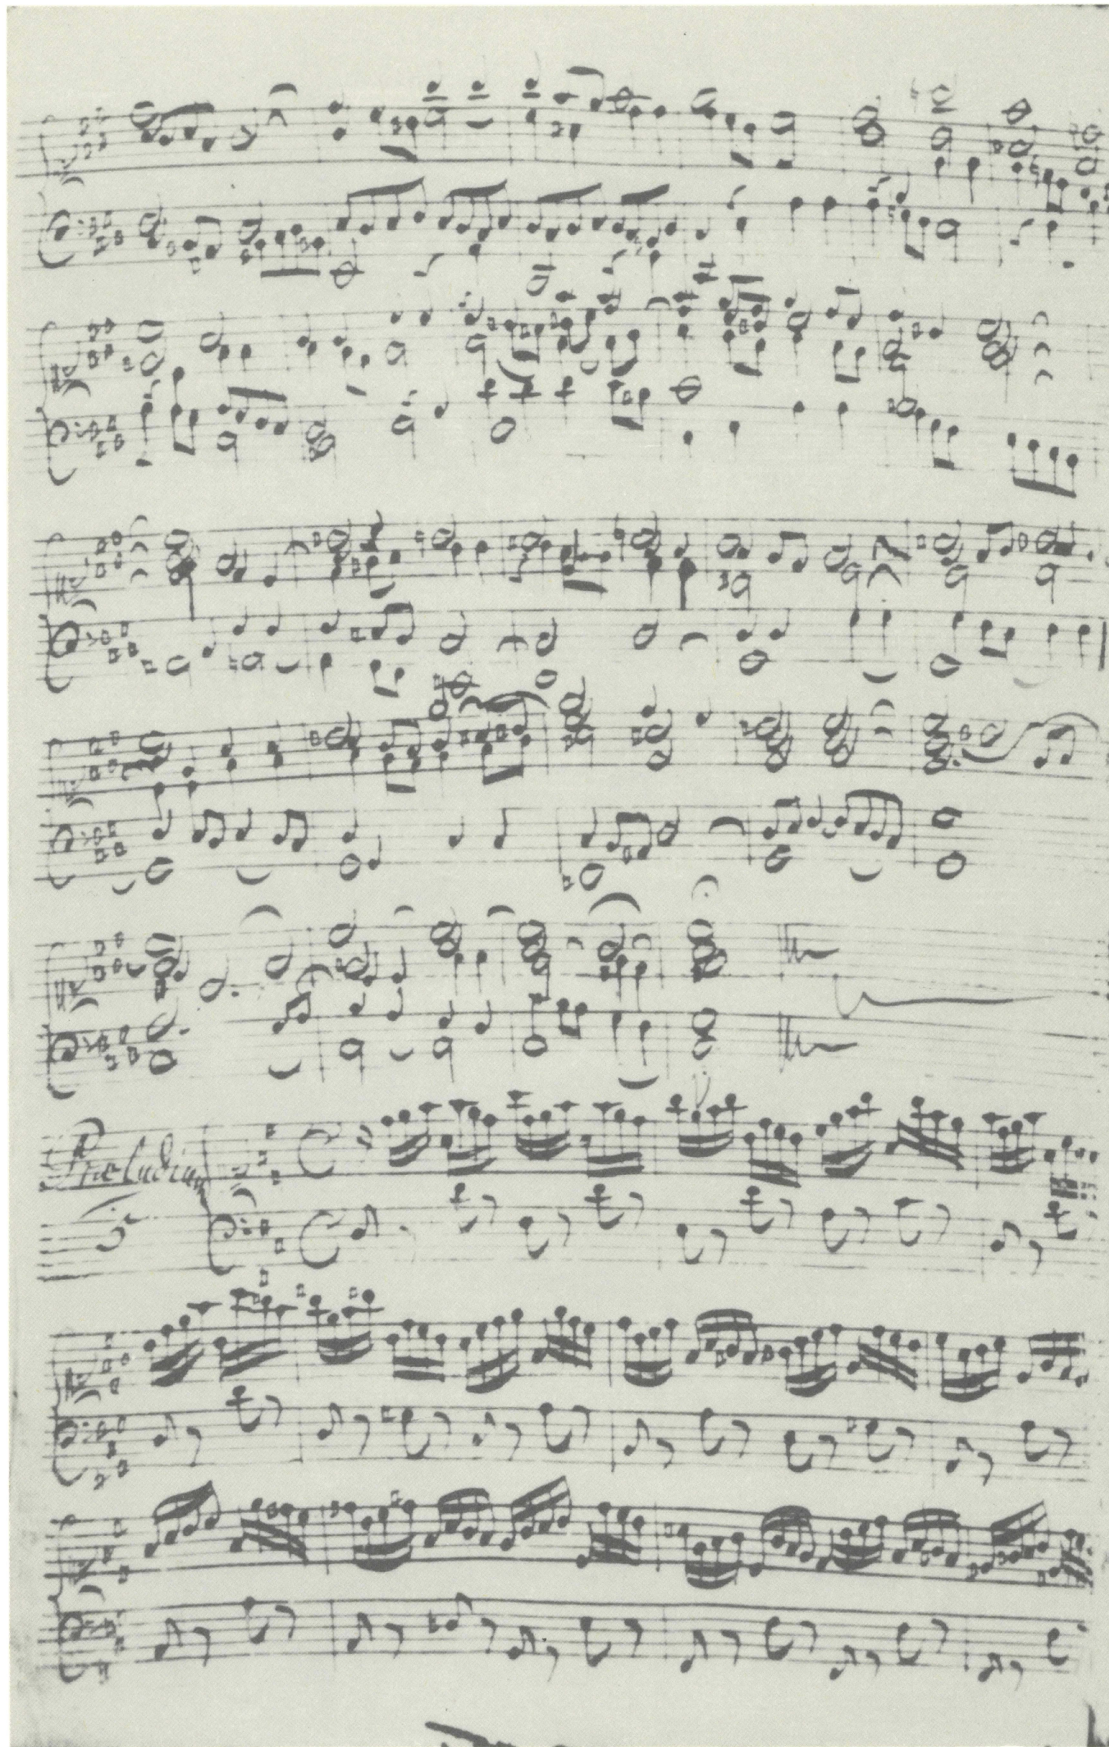 Præludium
5.